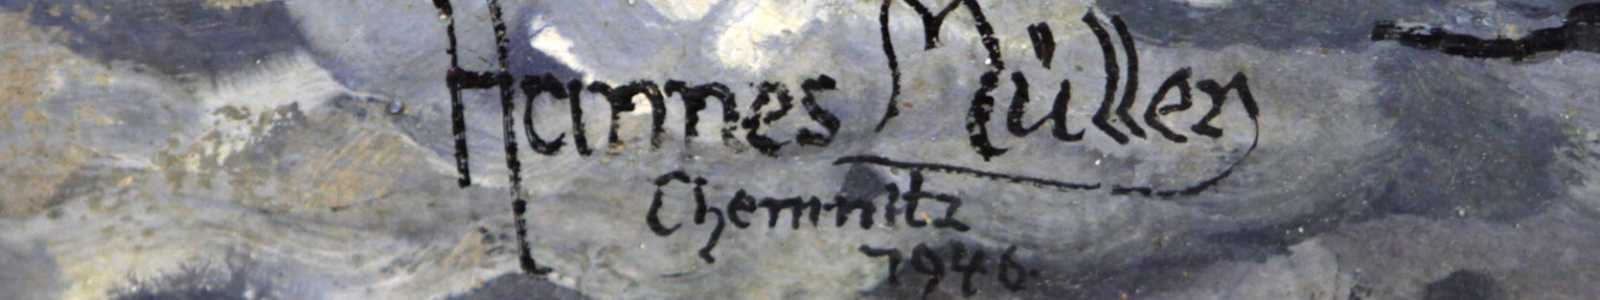 Hannes Müller
Chemnitz
1946.